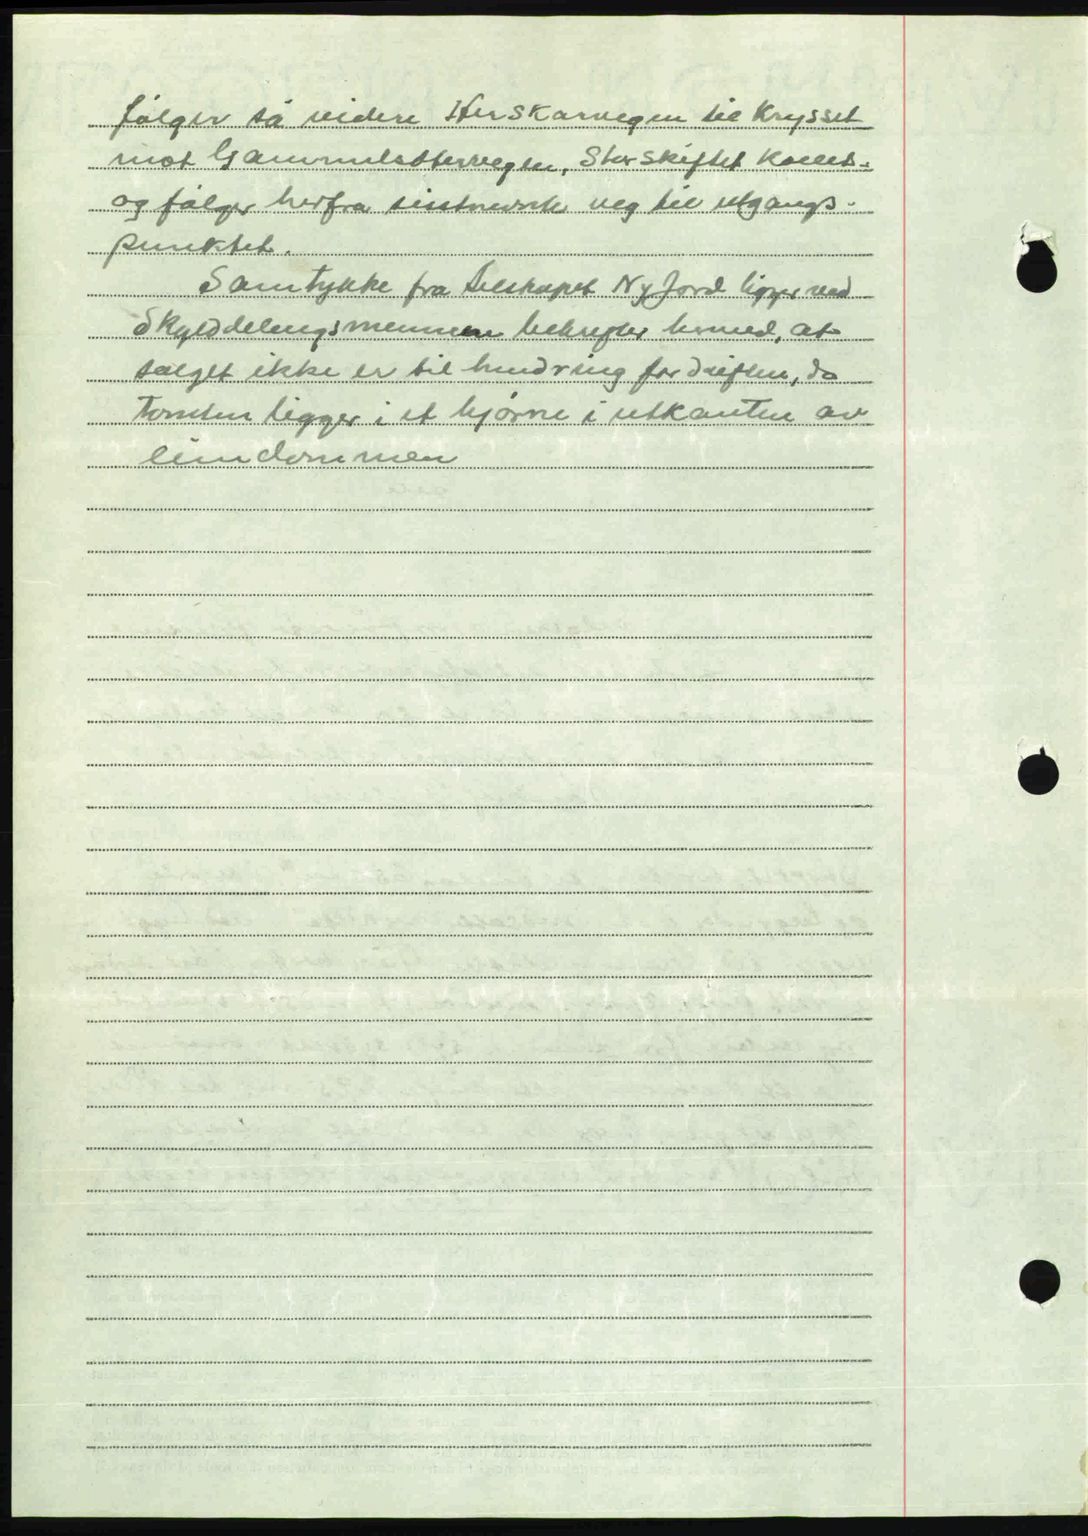 følger så videre Herskarvegen til Krysset
mot Gammelsætervegen, Storskiftet Kallet-
og følger herfra sistnevnte veg til utgangs-
punktet.
Samtykke fra Selskapet Ny Jord ligger ved
Skylddelingsmennene bekrefter hermed, at
salget ikke er til hindring for driften, da
Tomten ligger i et hjørne i utkanten av
eiendommen